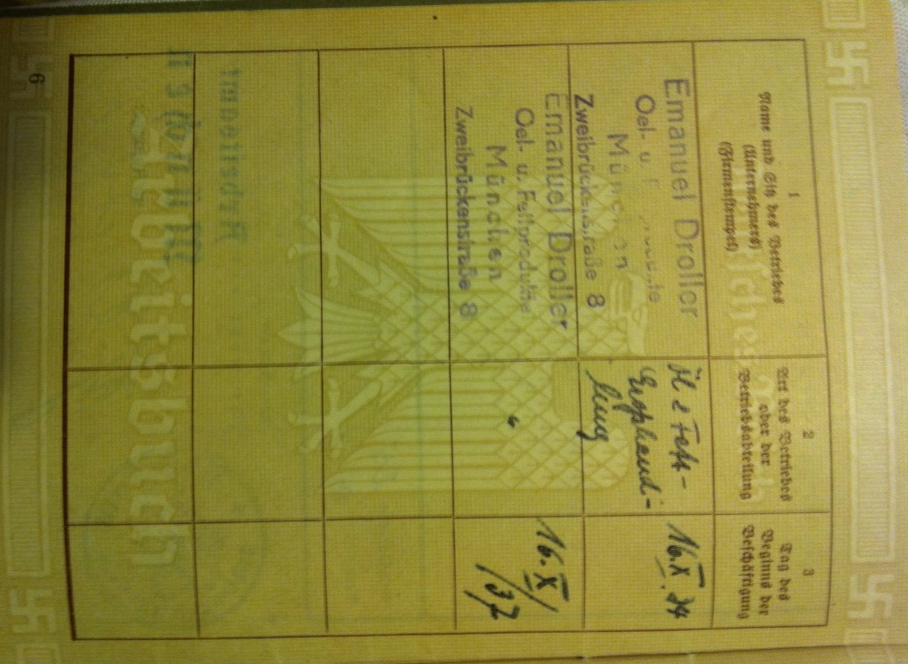 6
1
Name und Sitz des Betriebes
(Unternehmers)
(Firmenstempel)
2
Art des Betriebes
oder der
Betriebsabteilung
3
Tag des
Beginns der
Beschäftigung
Emanuel Droller
Oel- u.
München
Zweibrückenstraße 8
Öl & Fett-
Großhand-
lung
16. X. 34
Emanuel Droller
Oel- u. Fettprodukte
München
Zweibrückenstraße 8
"
16. X/
/37
Deutsches
Arbeitsbuch